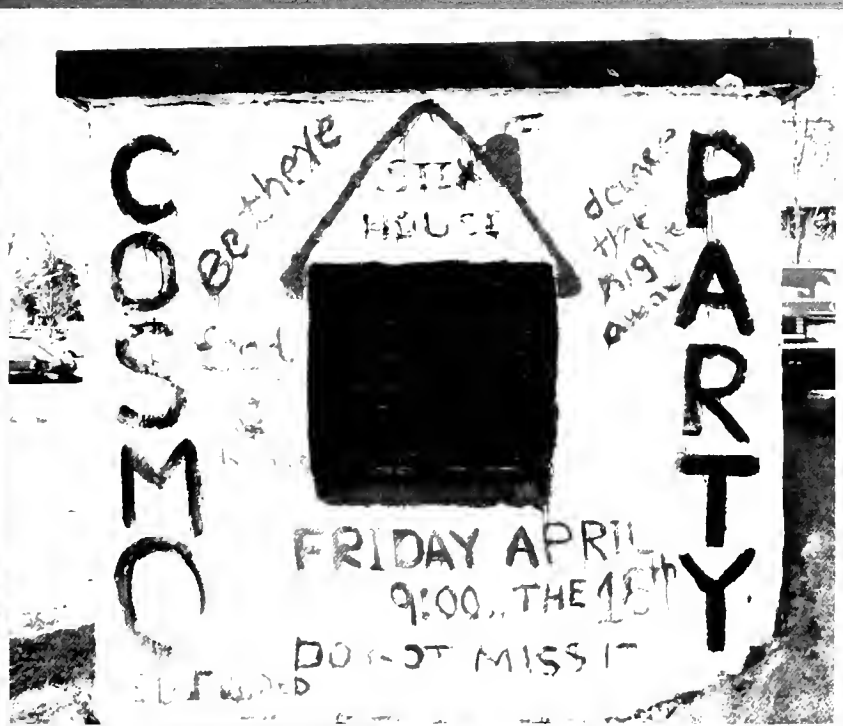 COSMO
Be there
STIX
HOUSE
dance
the
night
away
PARTY
FRIDAY APRIL
9:00.. THE 18th
DO NOT MISS IT